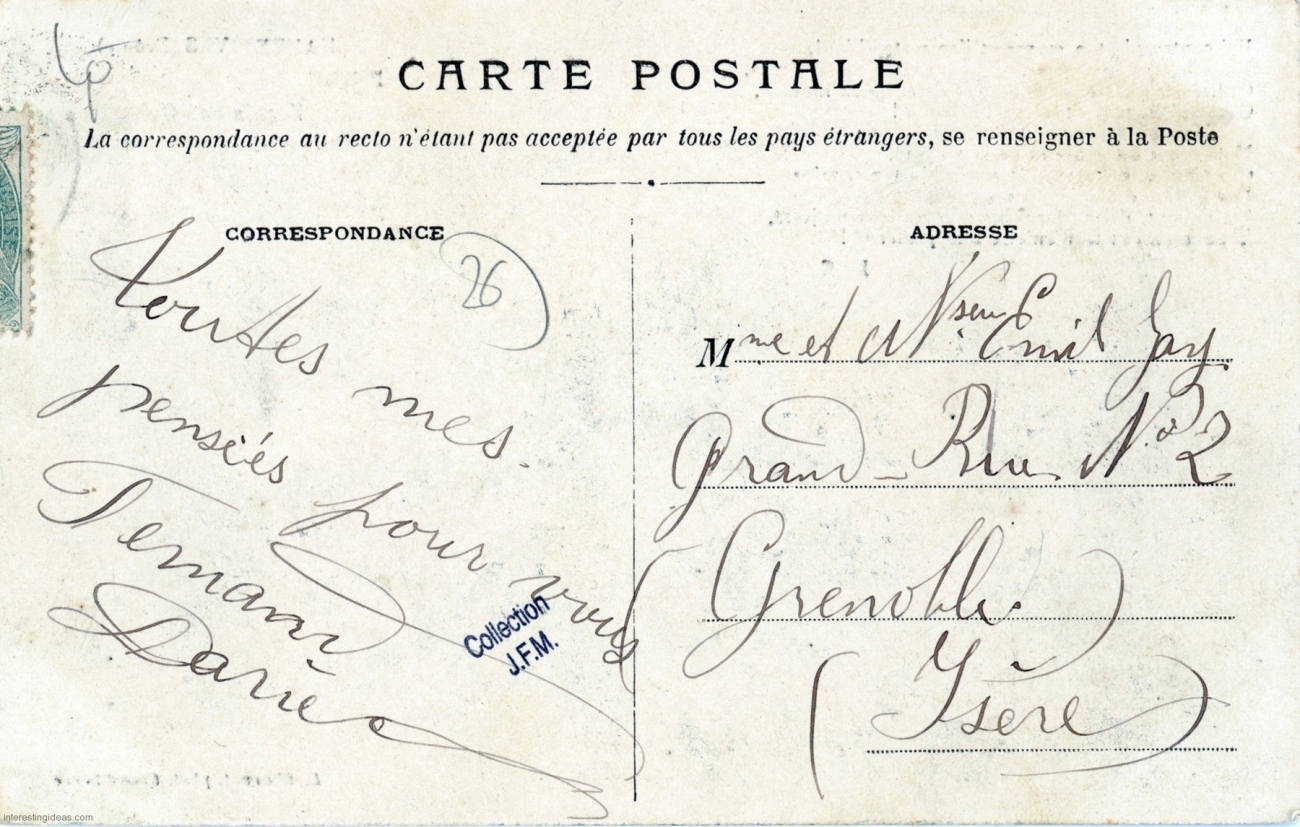 CARTE POSTALE
La correspondance au recto n'étant pas acceptée par tous les pays étrangers, se renseigner à la Poste
CORRESPONDANCE
26
Toutes mes
penseés
pour vous
Collection
J.F.M.
ADRESSE
Mme et Emil Gay
Grand-Rue No 2
Grenoble
(Isère)
interestingideas.com